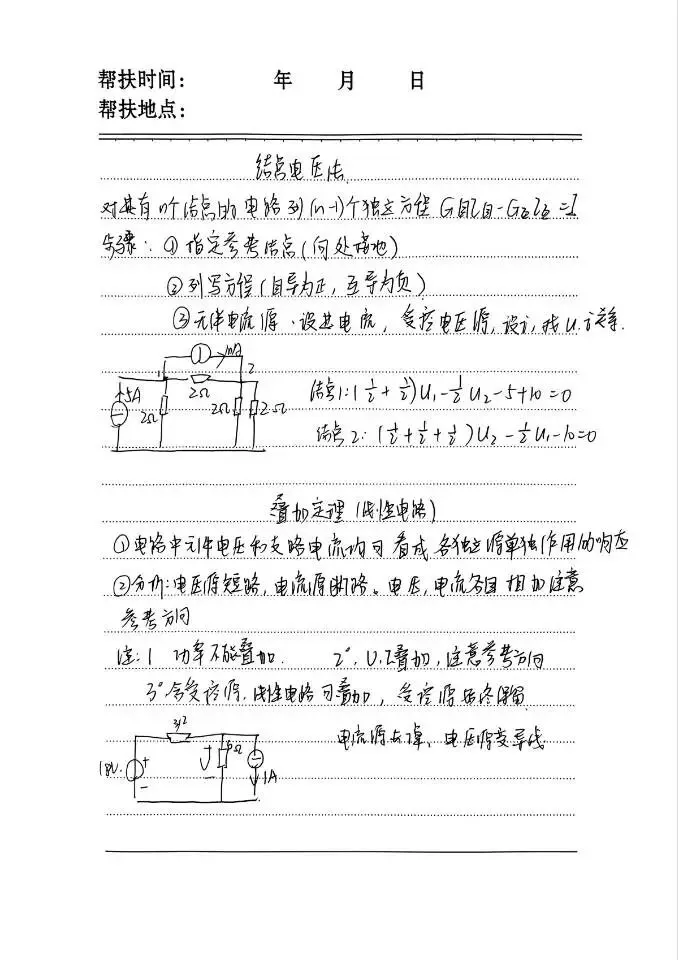 帮扶时间： 年 月 日
帮扶地点：
结点电压法
对其有n个结点的电路列(n-1)个独立方程 G自U自-G互U互=I
步骤：① 指定参考结点(何处接地)
② 列写方程(自导为正，互导为负)
③ 无伴电流源、设其电流，受控电压源，设i，找U
1 2
5A 2Ω 2Ω 2Ω 2Ω
结点1:(1/2+1/2)U1-1/2U2-5+10=0
结点2:(1/2+1/2+1/2)U2-1/2U1-10=0
叠加定理(线性电路)
①电路中元件电压和支路电流均可看成各独立源单独作用的响应
②分析:电压源短路，电流源断路。电压，电流各自相加注意
参考方向
注:1 功率不能叠加. 2°.U、I叠加，注意参考方向
3°含受控源.线性电路可叠加，受控源始终保留
电流源去掉、电压源变导线
18V + - - 6Ω 1A